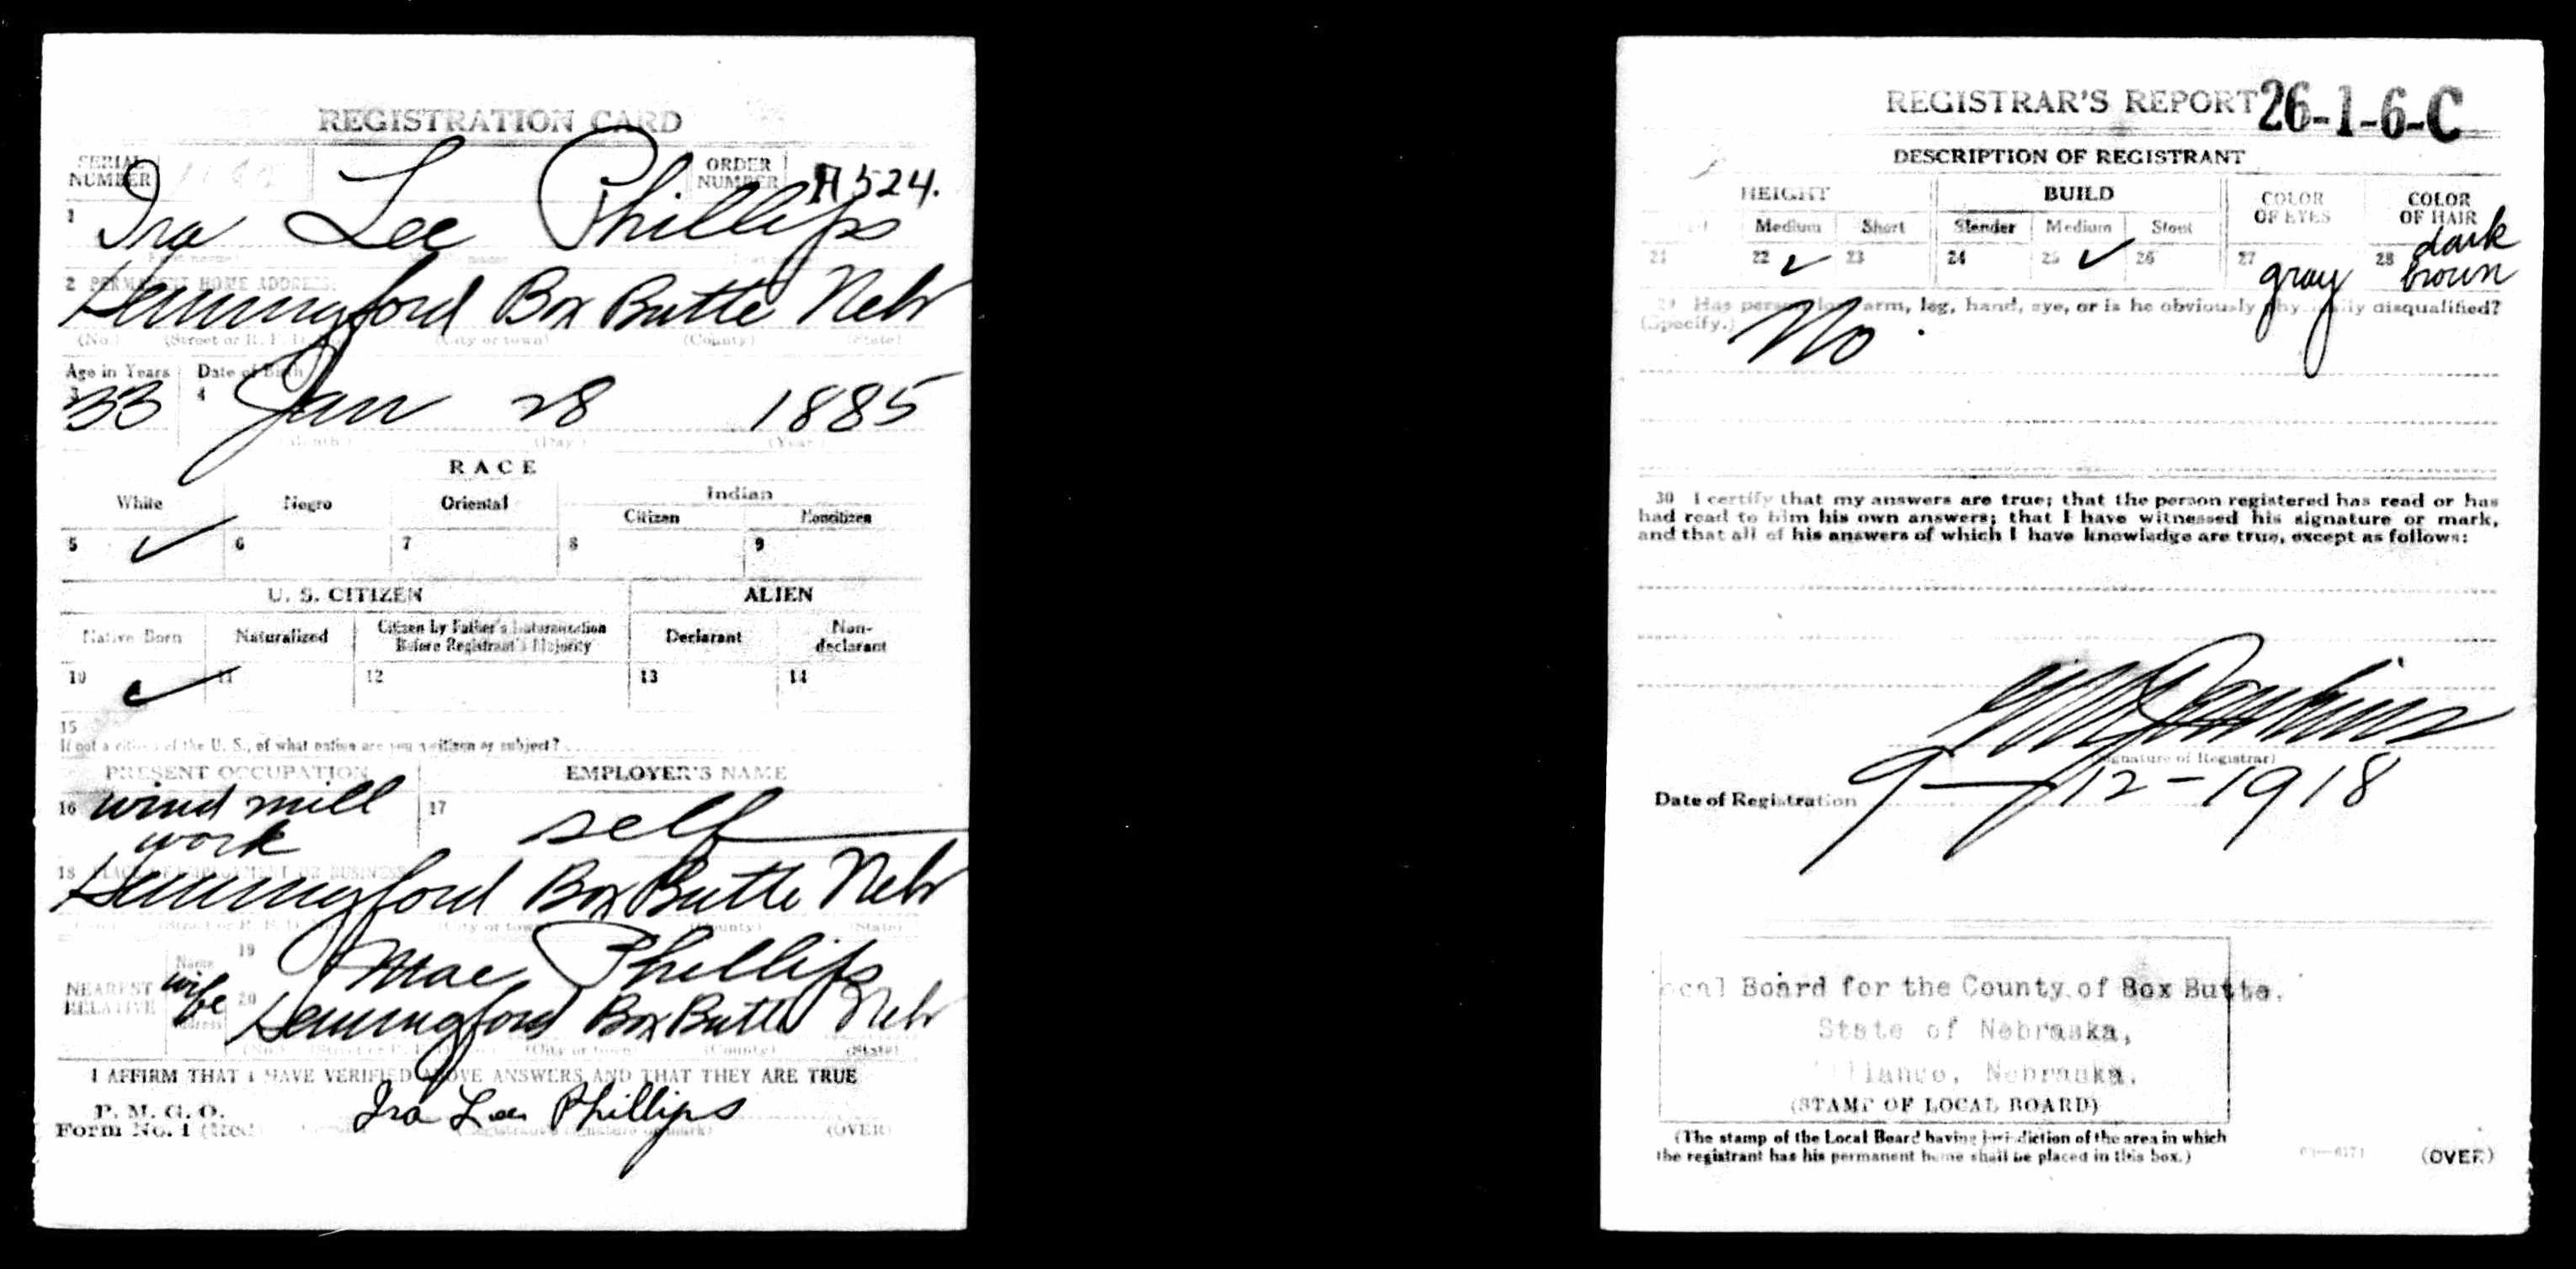 REGISTRATION CARD
SERIAL NUMBER
ORDER NUMBER A524.
1 Ira Lee Phillips
2 PERMANENT HOME ADDRESS:
Hemingford Box Butte Nebr
(No.) (Street or R. F. D. (City or town) (County) (State)
Age in Years Date of Birth
3 33 4 Jan 28 1885
(Month) (Day) (Year)
RACE
White Negro Oriental Indian
Citizen Noncitizen
5 ✓ 6 7 8 9
U. S. CITIZEN ALIEN
Native Born Naturalized Citizen by Father's Naturalization Before Registrant's Majority Declarant Non-declarant
10 ✓ 11 12 13 14
15
If not a citizen of the U. S., of what nation are you a citizen or subject?
PRESENT OCCUPATION EMPLOYER'S NAME
16 wind mill work 17 self
18 PLACE OF EMPLOYMENT OR BUSINESS
Hemingford Box Butte Nebr
(Street or R. F. D. (City or town) (County) (State)
NEAREST RELATIVE
Name 19 Mae Phillips
wife
Address 20 Hemingford Box Butte Nebr
(No.) (Street or R. F. D. (City or town) (County) (State)
I AFFIRM THAT I HAVE VERIFIED ABOVE ANSWERS AND THAT THEY ARE TRUE
P. M. G. O.
Form No. 1 (Red) Ira Lee Phillips
(Registrant's signature or mark) (OVER)
REGISTRAR'S REPORT 26-1-6-C
DESCRIPTION OF REGISTRANT
HEIGHT BUILD COLOR OF EYES COLOR OF HAIR
Medium Short Slender Medium Stout
21 22 ✓ 23 24 25 ✓ 26 27 gray 28 dark brown
29 Has person lost arm, leg, hand, eye, or is he obviously physically disqualified?
(Specify.) No.
30 I certify that my answers are true; that the person registered has read or has
had read to him his own answers; that I have witnessed his signature or mark,
and that all of his answers of which I have knowledge are true, except as follows:
(Signature of Registrar)
Date of Registration 9-12-1918
Local Board for the County of Box Butte.
State of Nebraska,
Alliance, Nebraska.
(STAMP OF LOCAL BOARD)
(The stamp of the Local Board having jurisdiction of the area in which
the registrant has his permanent home shall be placed in this box.)
(OVER)